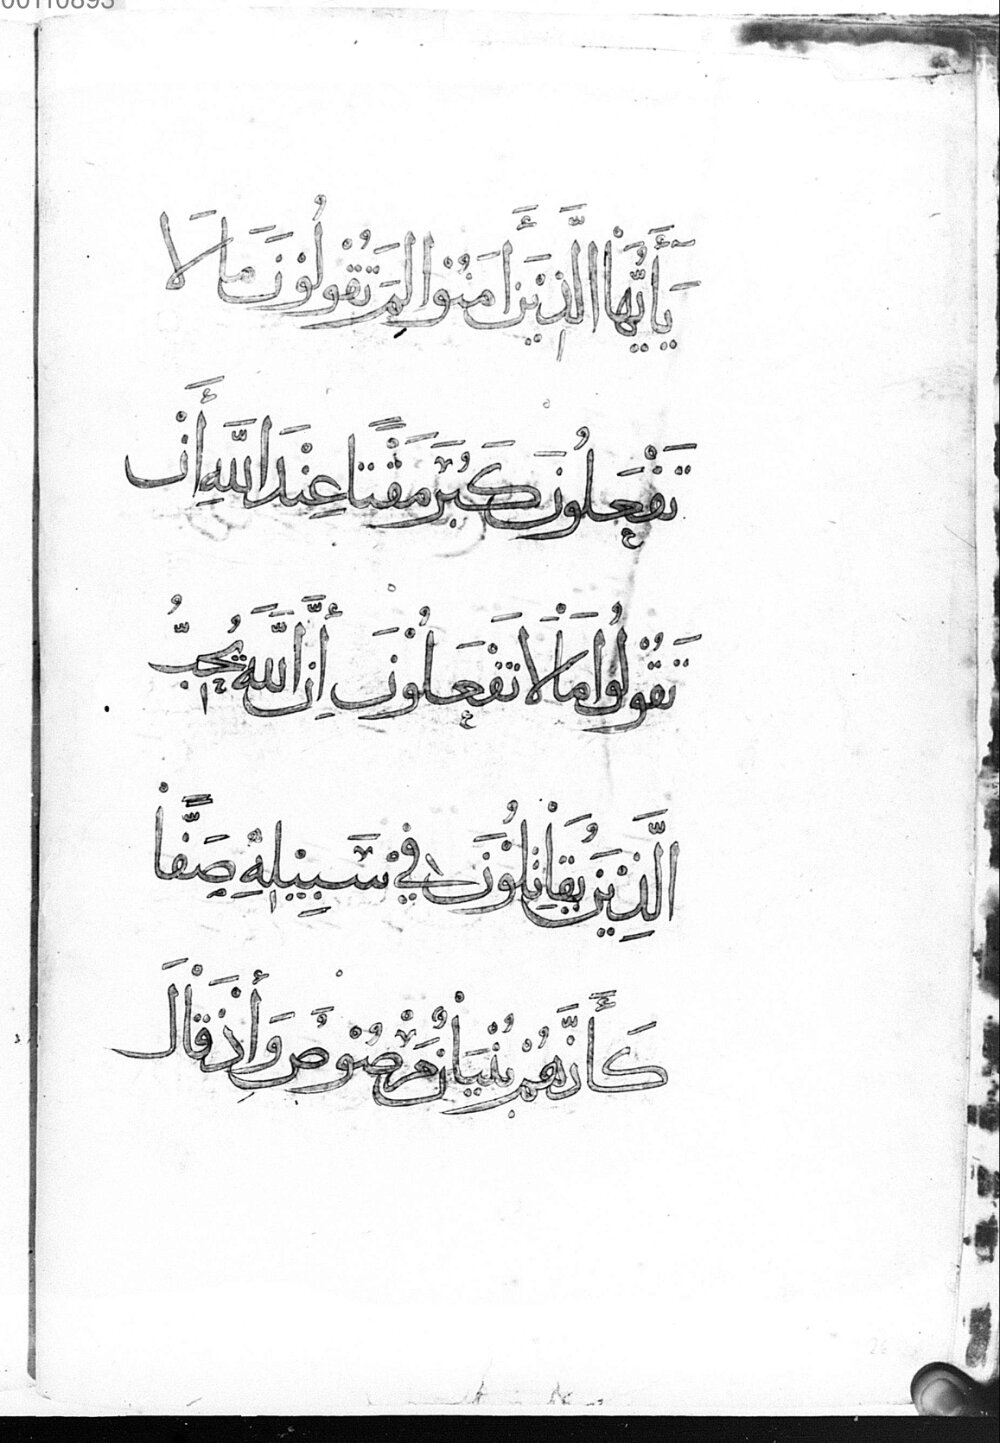 00110893
يَأَيُّهَا الَّذِيْنَ أَمَنُوْا لِمَ تَقُوْلُوْنَ مَا لَا
تَفْعَلُوْنَ كَبُرَ مَقْتًا عِنْدَ اللَّهِ أَنْ
تَقُوْلُوْا مَا لَا تَفْعَلُوْنَ إِنَّ اللَّهَ يُحِبُّ
الَّذِيْنَ يُقَاتِلُوْنَ فِيْ سَبِيْلِهٖ صَفًّا
كَأَنَّهُمْ بُنْيَانٌ مَرْصُوْصٌ وَإِذْ قَالَ
26